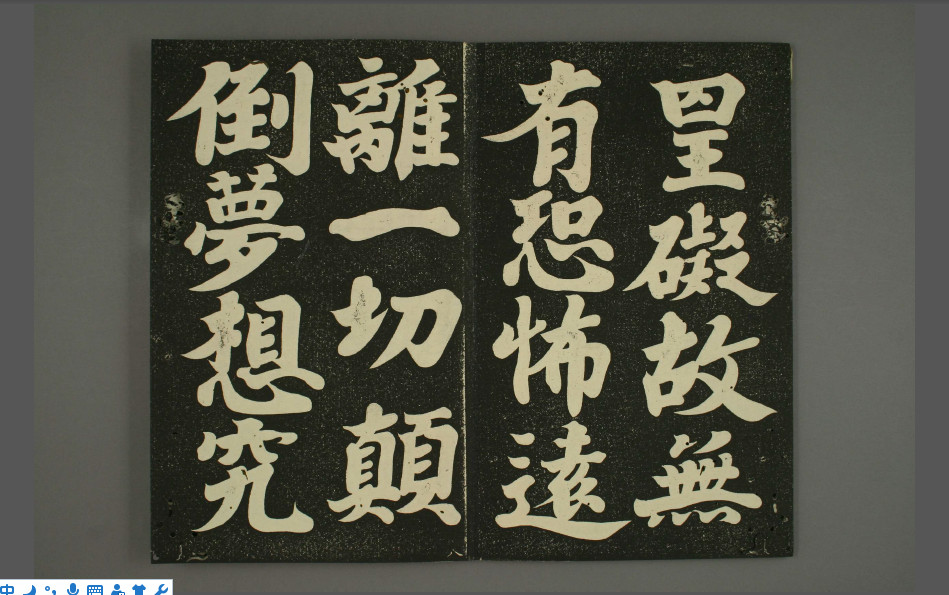 罣礙故無
有恐怖遠
離一切顛
倒夢想究
中